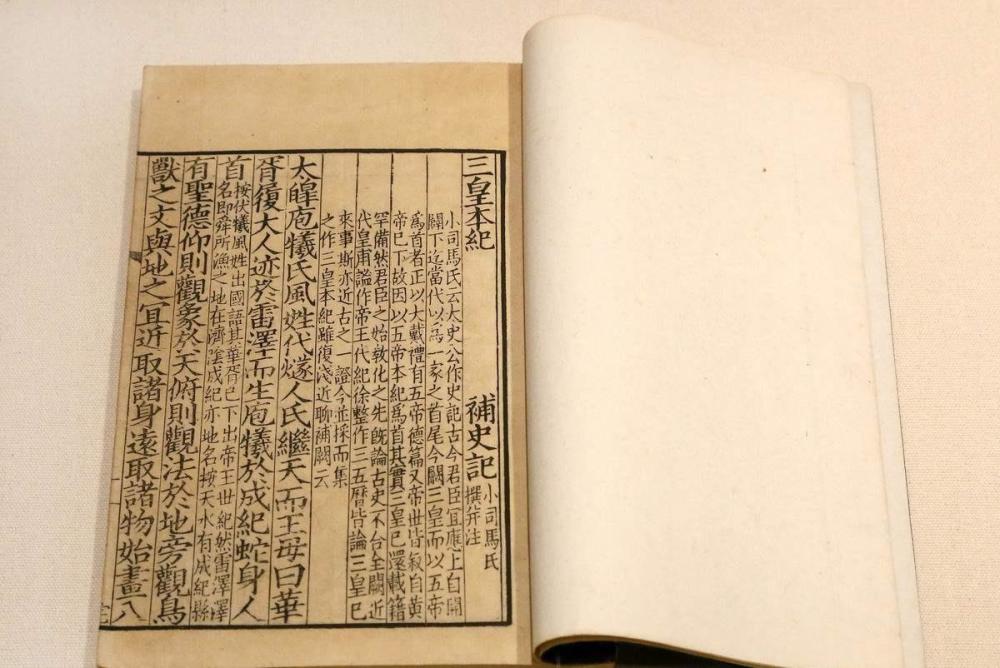 三皇本紀 補史記 小司馬氏
撰并注
小司馬氏云大史公作史記古今君臣宜應上自開
闢下迄當代以爲一家之首尾今闕三皇而以五帝
爲首者正以大戴禮有五帝德篇又帝世皆叙自黃
帝已下故因以五帝本紀爲首其實三皇已還載籍
罕備然君臣之始敎化之先旣論古史不合全闕近
代皇甫謐作帝王代紀徐整作三五曆皆論三皇已
來事斯亦近古之一證今並採而集
之作三皇本紀雖復淺近聊補闕云
太皥庖犧氏風姓代燧人氏繼天而王母曰華
胥履大人迹於雷澤而生庖犧於成紀蛇身人
首 按伏犧風姓出國語其華胥已下出帝王世紀然雷澤澤
名即舜所漁之地在濟陰成紀亦地名按天水有成紀縣
有聖德仰則觀象於天俯則觀法於地旁觀鳥
獸之文與地之宜近取諸身遠取諸物始畫八